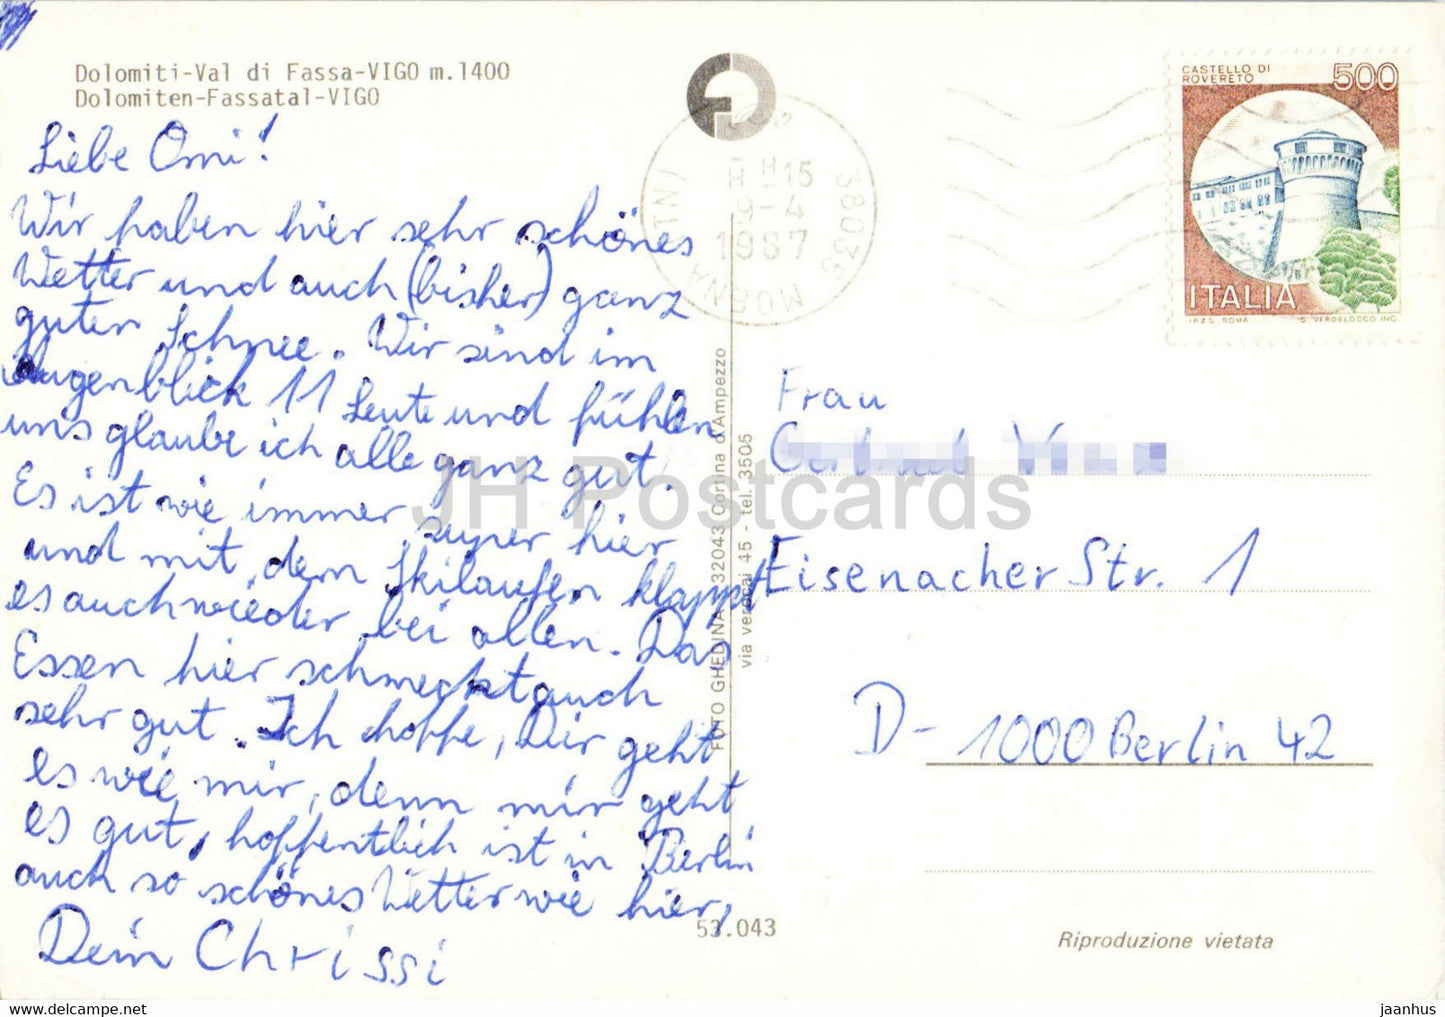 Dolomiti-Val di Fassa-VIGO m.1400
Dolomiten-Fassatal-VIGO
Liebe Omi!
Wir haben hier sehr schönes
Wetter und auch (bisher) ganz
guten Schnee. Wir sind im
Augenblick 11 Leute und fühlen
uns glaube ich alle ganz gut.
Es ist wie immer super hier
und mit dem Skilaufen klappt
es auch wieder bei allen. Das
Essen hier schmeckt auch
sehr gut. Ich hoffe, Dir geht
es wie mir, denn mir geht
es gut, hoffentlich ist in Berlin
auch so schönes Wetter wie hier,
Dein Chrissi
FOTO GHEDINA 32043 Cortina d'Ampezzo
via verocai 45 - tel. 3505
53.043
38035 MOENA (TN)
H 15
9-4
1987
CASTELLO DI
ROVERETO
500
ITALIA
I.P.Z.S. ROMA
G. VERDELOCCO INC.
Frau
Eisenacher Str. 1
D-1000 Berlin 42
Riproduzione vietata
JH Postcards
HIPPOSTCARD.COM
jaanhus